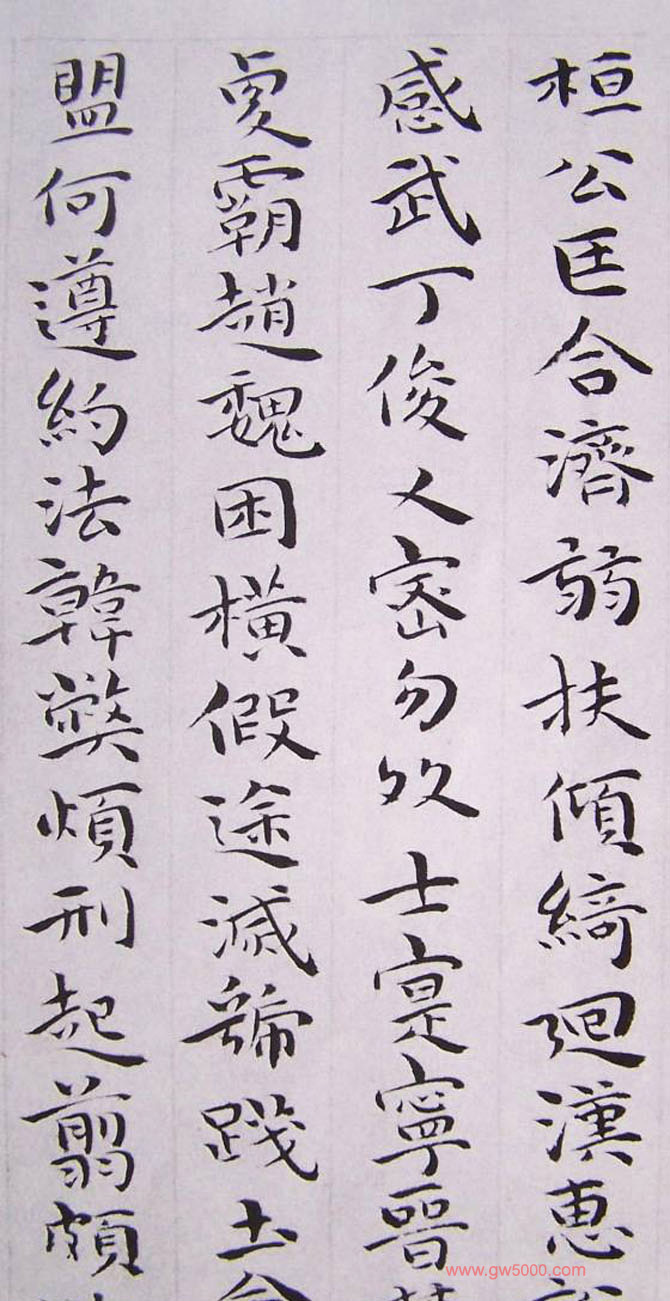 桓公匡合濟弱扶傾綺迴漢惠說
感武丁俊乂密勿多士寔寧晉楚
更霸趙魏困橫假途滅虢踐土會
盟何遵約法韓弊煩刑起翦頗
www.gw5000.com